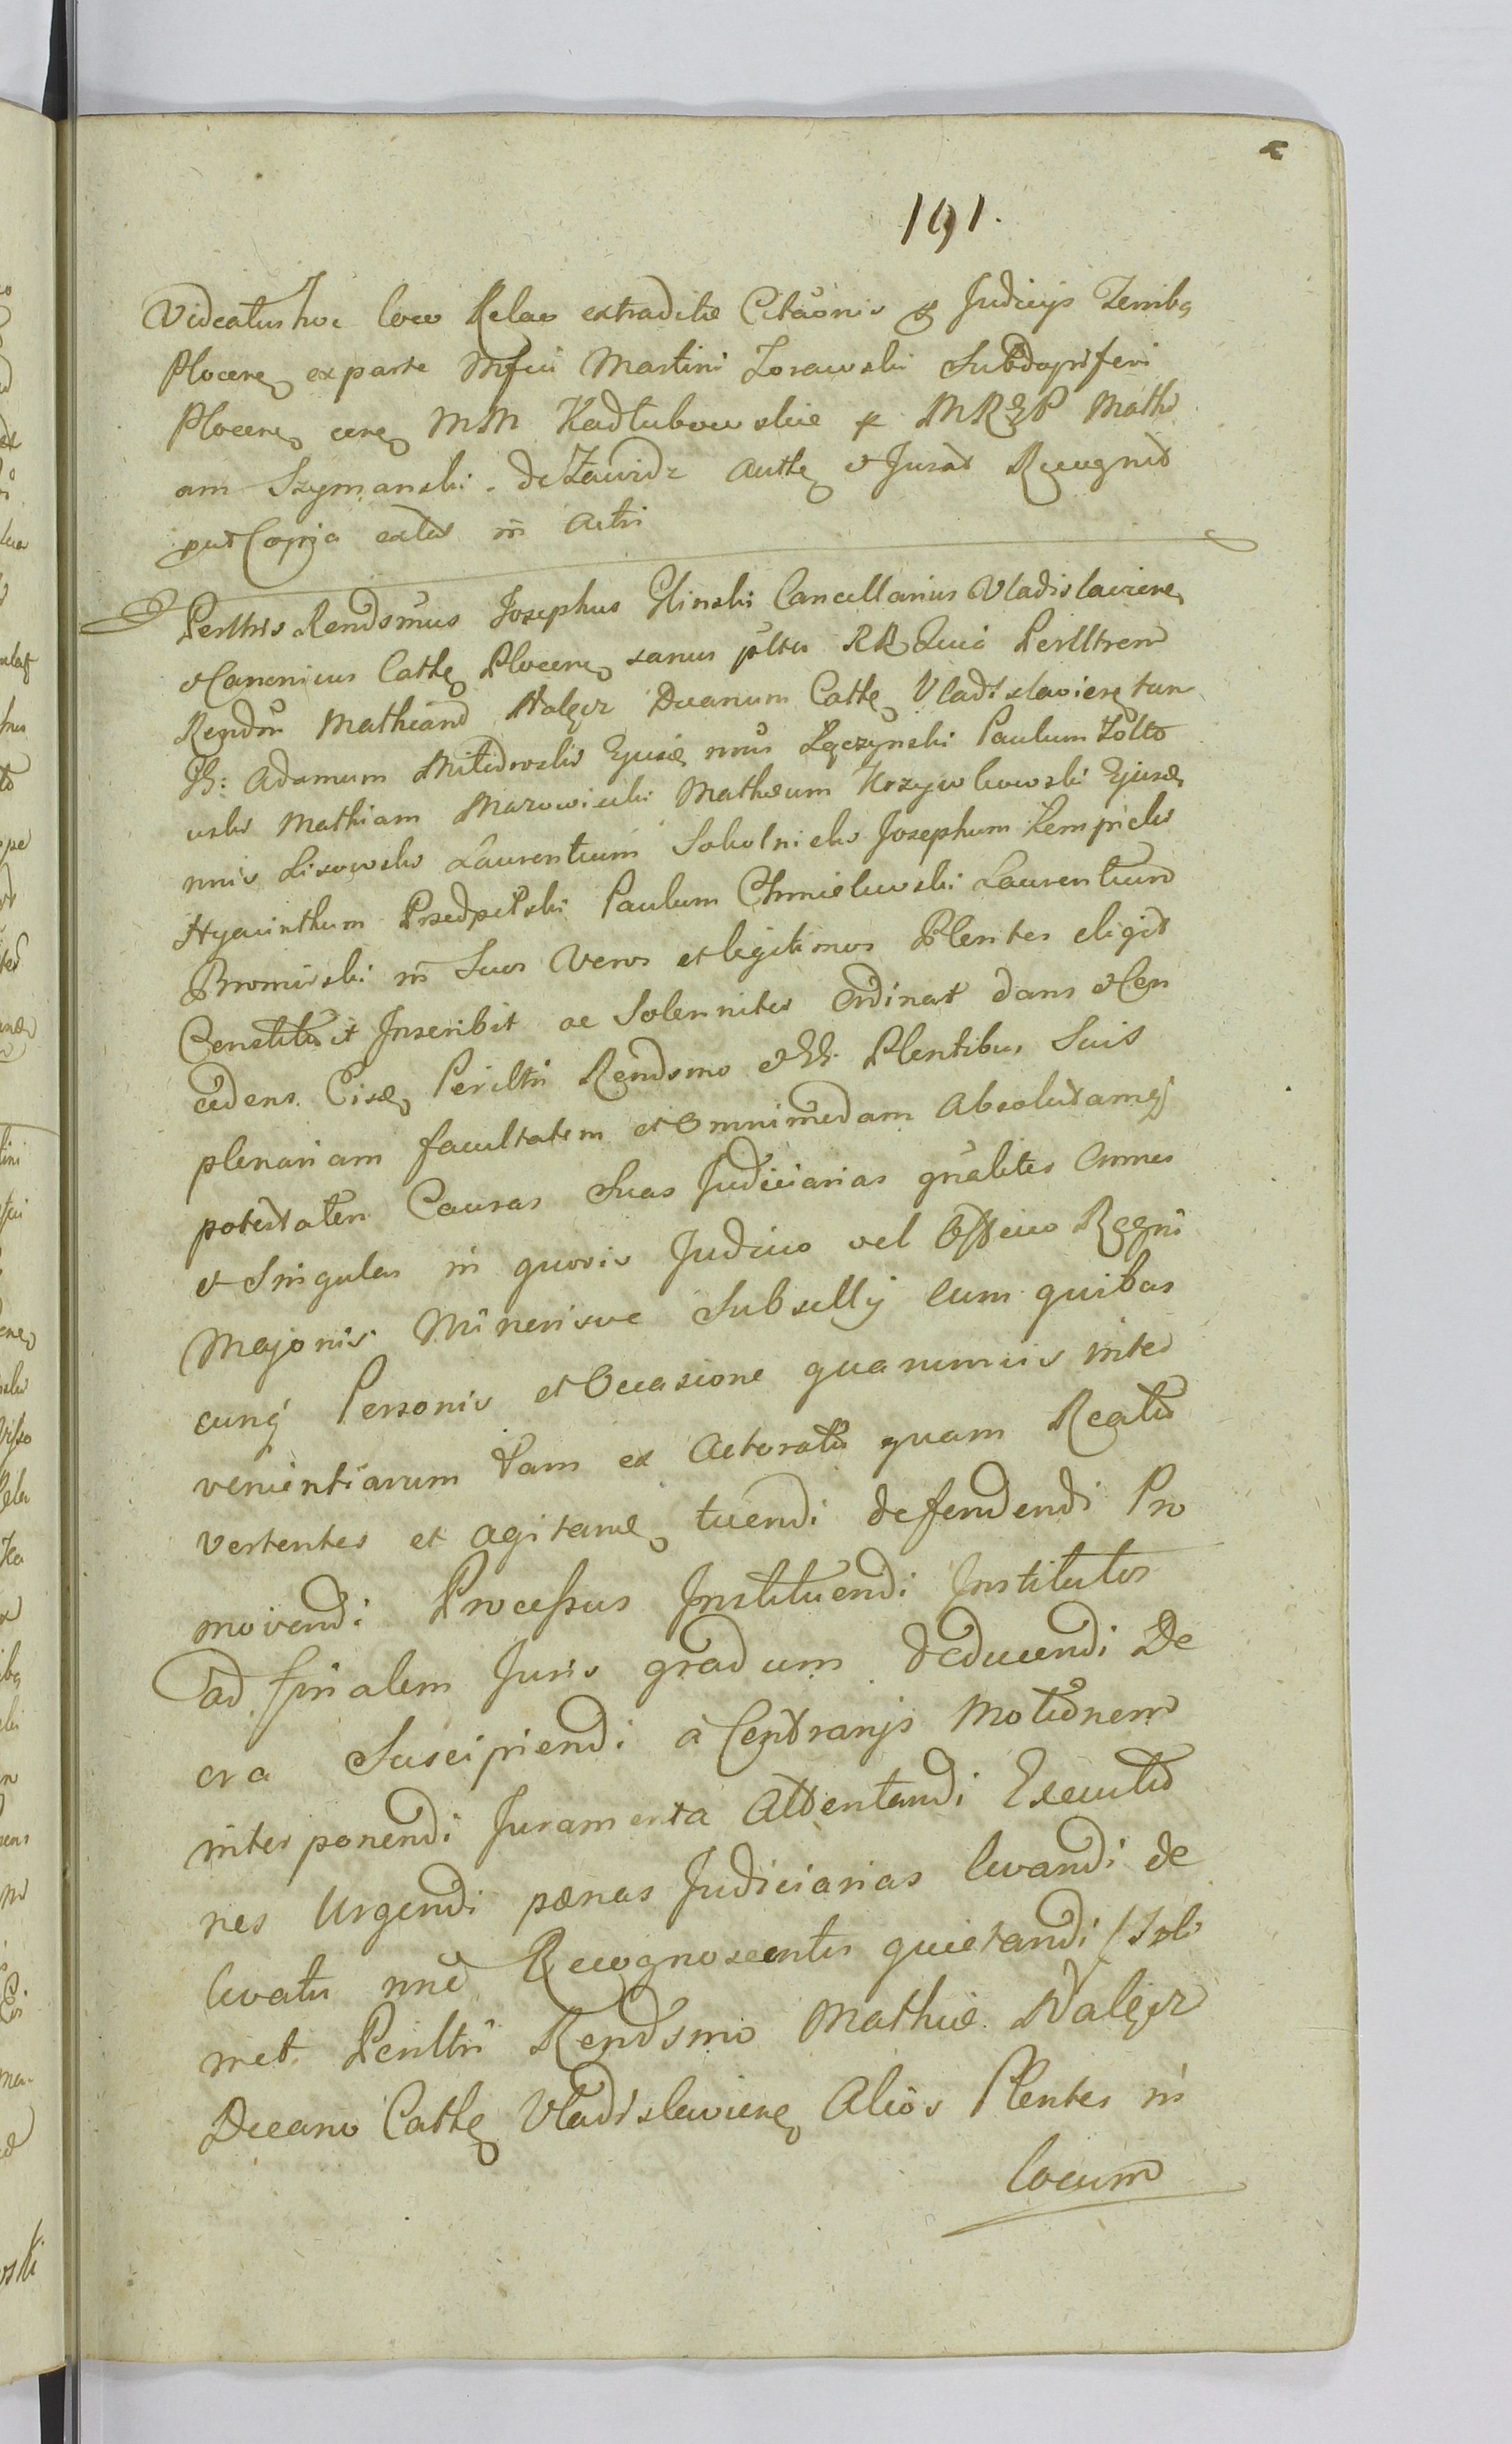 191.
Videatur hoc loco Relao extraditæ Citaõnis ex Judicijs Terribq
Plocen exparte Mfici Martini Zorawski Subdapiferi
Plocen cen MM Kadłubowskie p MR&P Math
am Szymanski de Zawidz Auth et Jurat Recognit
put Copia extat in Actis
Perlltris Rendsmus Josephus Glinski Cancellarius Vladislavien
et Canonicus Cath Plocen sanus RR Quia Perlltrem
Rendm Mathiand Nałęcz Decanum Cath Vladislavien tum
GG: Adamum Milewski Ejusd nnis Łęczynski Paulum Zołto
wski Mathiam Mazowiecki Mathæum Krzywkowski Ejusd
nnis Lisowski Laurentium Sokolnicki Josephum Kempicki
Hyacinthum Przedpełski Paulum Chmielewski Laurentium
Bromirski in Suos Veros et legitimos Plentes eligit
Constituit Inscribit ac Solenniter Ordinat dans et Con
cedens Eisd Perlltri Rendsmo et GG Plentibus Suis
plenariam facultatem et Omnimodam Absolutamq
potestatem Causas Suas Judiciarias gñaliter Omnes
et Singulas in quovis Judicio vel Officio Regni
Majoris Minorisve Subsellij Cum quibus
cunq Personis et Occasione quarumvis inter
venientiarum tam ex Actoratu quam Reatu
vertentes et agitand tuendi defendendi Pro
movendi Processus Instituendi Institutos
ad finalem Juris gradum deducendi De
cra Suscipiendi a Contrarijs Motionem
interponendi Juramenta Attentandi Executio
nes Urgendi pænas Judiciarias levandi de
levatis nne Recognoscentis quietandi / Ipsi
met Perlltri Rendsmo Mathiæ Nałęcz
Decano Cath Vladislavien Alios Plentes in
locum